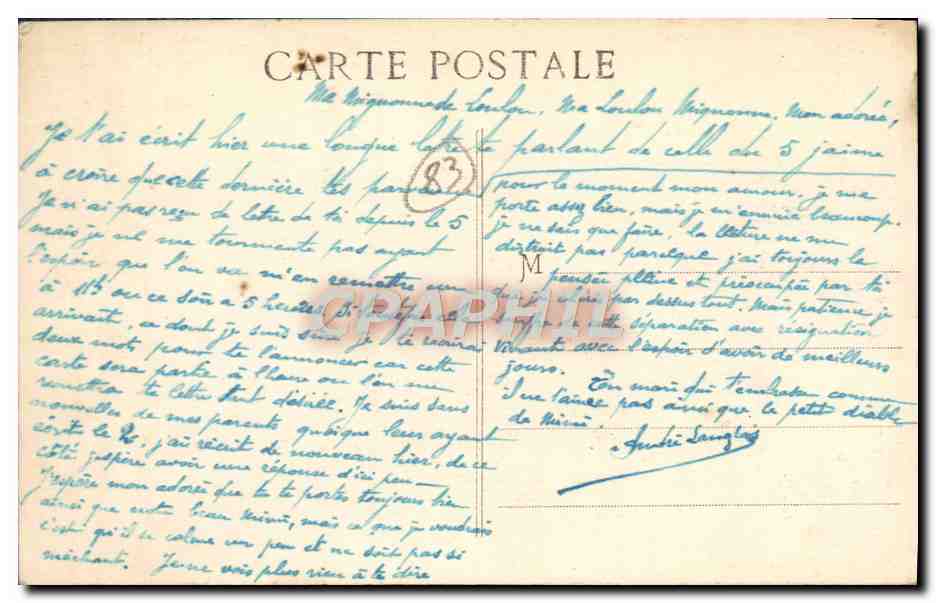 CARTE POSTALE
Ma Mignonne de Loulou, Ma Loulou Mignonne, Mon adorée,
Je t'ai écrit hier une longue lettre te parlant de celle du 5 j'aime
à croire que cette dernière t'es
83
Je n'ai pas reçu de lettre de ti depuis le 5
mais je ne me tourmente pas ayant
l'espoir que l'on va m'en remettre une
à 11h ou ce soir à 5 heures. Si
arrivait, ce dont je suis sûr je te
deux mots pour te l'annoncer car cette
carte sera partie à l'heure ou l'on me
remettra te lettre tant désirée. Je suis sans
nouvelles de mes parents quoique leur ayant
écrit le 2, j'ai récrit de nouveau hier, de ce
côté j'espère avoir une réponse d'ici peu
J'espère mon adorée que tu te portes toujours bien
ainsi que notre beau Mimi, mais ce que je voudrais
c'est qu'il se calme un peu et ne soit pas si
méchant. Je ne vois plus rien à te dire
pour le moment mon amour, je me
porte assez bien, mais je m'ennuie beaucoup.
je ne sais que faire, la lecture ne me
distrait pas parceque j'ai toujours la
M
pensée pleine et préocupée par ti
par dessus tout. Mais patience je
cette séparation avec résignation
vivant avec l'espoir d'avoir de meilleurs
jours.
Ton mari qui t'embrasse comme
pas ainsi que le petit diable
de Mimi.
André Langlois
CPAPHIL